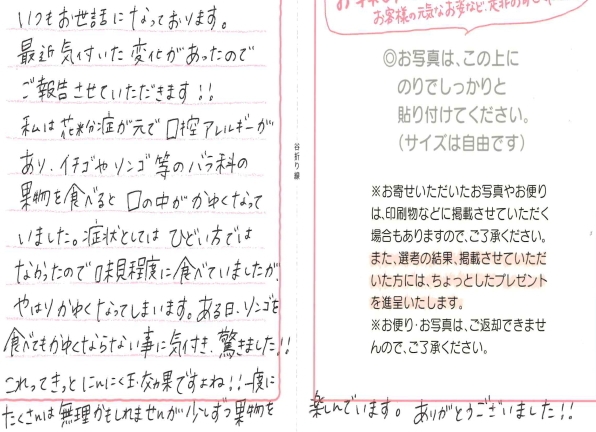 いつもお世話になっております。
最近気付いた変化があったので
ご報告させていただきます!!
私は花粉症が元で口腔アレルギーが
あり、イチゴやリンゴ等のバラ科の
果物を食べると口の中がかゆくなって
いました。症状としてはひどい方では
なかったので味見程度に食べていましたが、
やはりかゆくなってしまいます。ある日、リンゴを
食べてもかゆくならない事に気付き、驚きました!!
これってきっとにんにく玉効果ですよね!!一度に
たくさんは無理かもしれませんが少しずつ果物を
楽しんでいます。ありがとうございました!!
谷折り線
お客様の元気なお姿など、是非お寄せ
◎お写真は、この上に
のりでしっかりと
貼り付けてください。
(サイズは自由です)
※お寄せいただいたお写真やお便り
は、印刷物などに掲載させていただく
場合もありますので、ご了承ください。
また、選考の結果、掲載させていただ
いた方には、ちょっとしたプレゼント
を進呈いたします。
※お便り・お写真は、ご返却できませ
んので、ご了承ください。